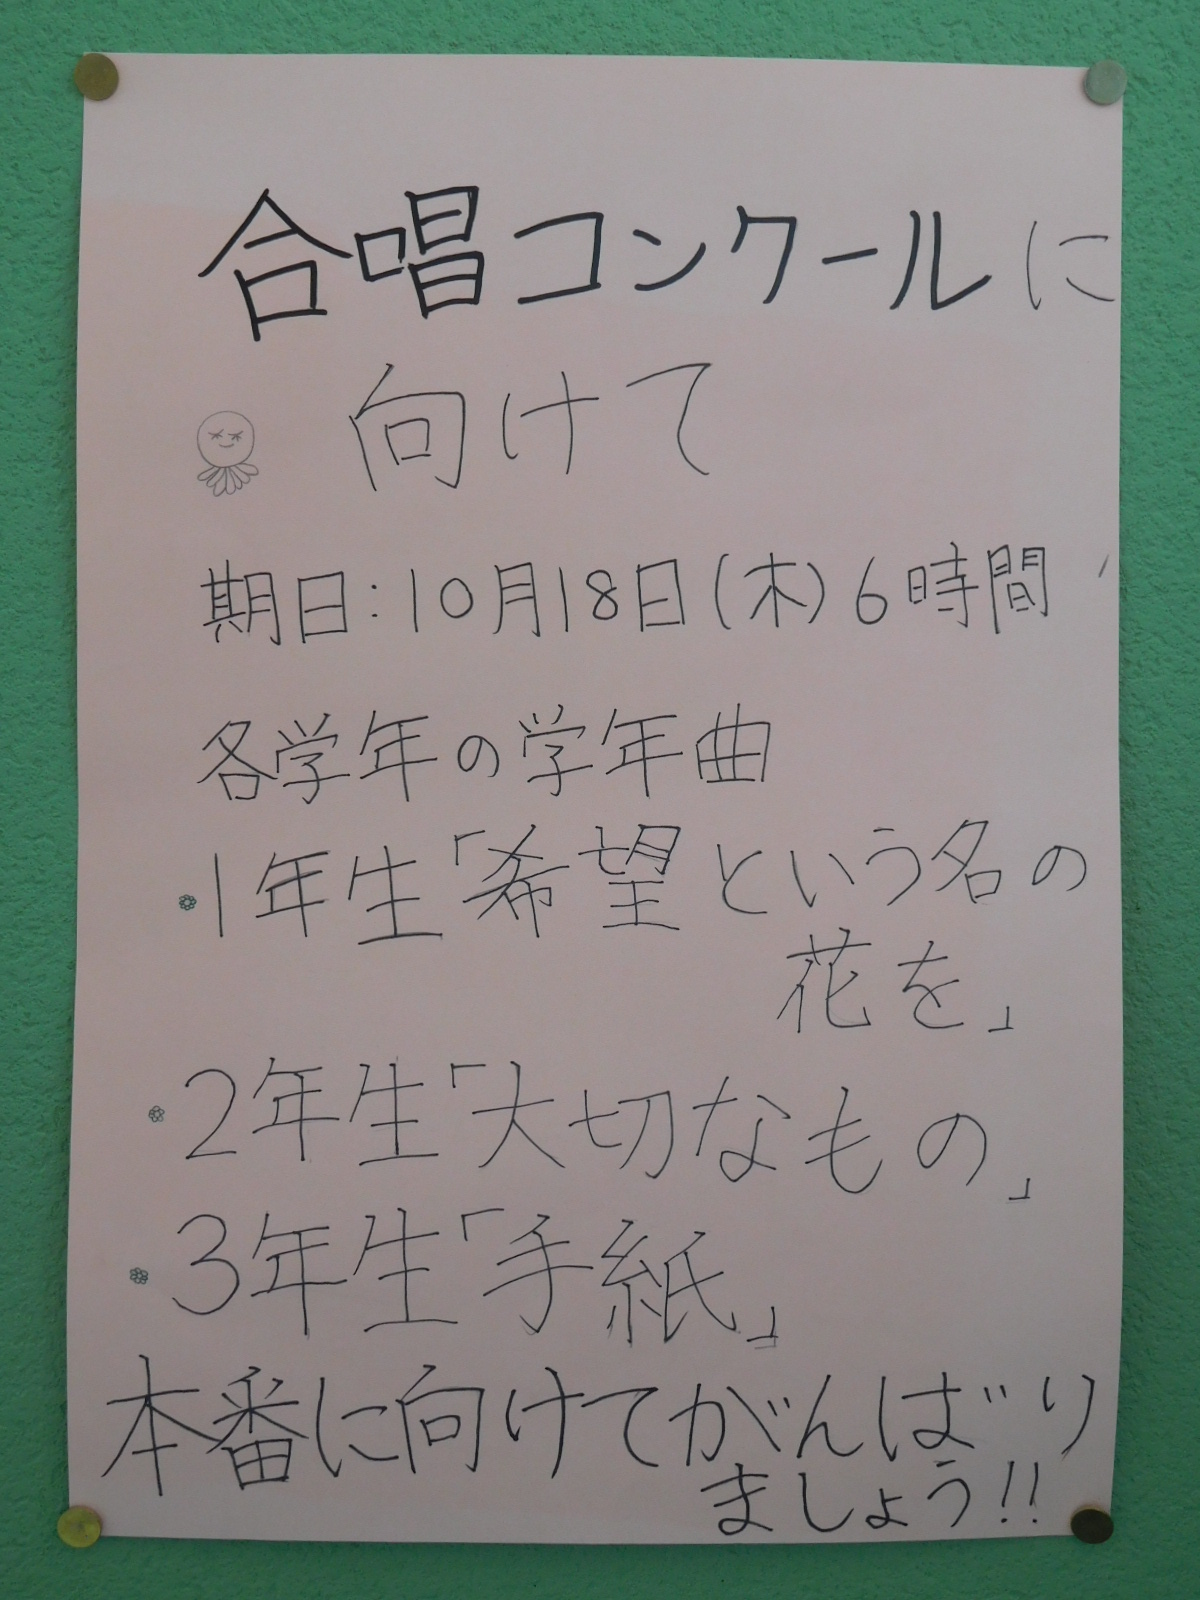 合唱コンクールに
向けて
期日:10月18日(木)6時間
各学年の学年曲
1年生「希望という名の
花を」
2年生「大切なもの」
3年生「手紙」
本番に向けてがんばり
ましょう!!